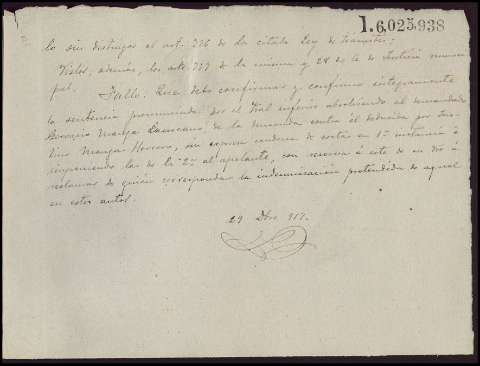 1.6.025.938
lo sin distingos el art. 736 de la citada Ley de trámites;
Vistos, además, los arts. 737 de la misma y 28 de la de Justicia munici-
pal.
Fallo: Que debo confirmar y confirmo íntegramente
la sentencia pronunciada por el Tral inferior absolviendo al demandado
Manga de la demanda contra él deducida por
Manga Herrero, sin expresa condena de costas en 1ª instancia é
imponiendo las de la 2ª al apelante, con reserva á este de su dro á
reclamar de quién corresponda la indemnización pretendida de aquel
en estos autos.
29 Dbre 917.